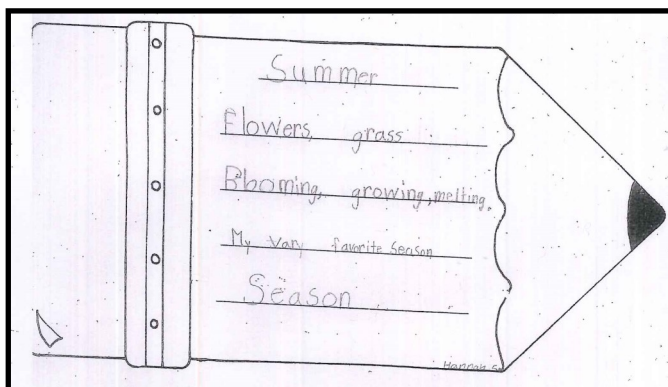 Summer
Flowers, grass
Blooming, growing, melting.
My vary favorite season
Season
Hannah S